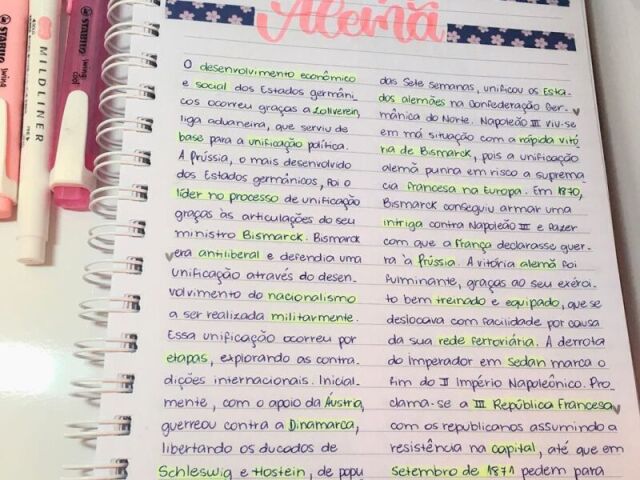 Alemã
STABILO swing cool
MILDLINER
STABILO swing cool
O desenvolvimento econômico
e social dos Estados germâni
cos ocorreu graças a Zollverein,
liga aduaneira, que serviu de
base para a unificação política.
A Prússia, o mais desenvolvido
dos Estados germânicos, foi o
líder no processo de unificação
graças às articulações do seu
ministro Bismarck. Bismarck
era antiliberal e defendia uma
unificação através do desen-
volvimento do nacionalismo
a ser realizada militarmente.
Essa unificação ocorreu por
etapas, explorando as contra
dições internacionais. Inicial-
mente, com o apoio da Áustria,
guerreou contra a Dinamarca,
libertando os ducados de
Schleswig e Hostein, de popu
das Sete semanas, unificou os Esta
dos alemães na Confederação Ger-
mânica do Norte. Napoleão III viu-se
em má situação com a rápida vitó
ria de Bismarck, pois a unificação
alemã punha em risco a suprema
cia francesa na Europa. Em 1870,
Bismarck conseguiu armar uma
intriga contra Napoleão III e fazer
com que a França declarasse guer-
ra à Prússia. A vitória alemã foi
fulminante, graças ao seu exérci-
to bem treinado e equipado, que se
deslocava com facilidade por causa
da sua rede ferroviária. A derrota
do imperador em Sedan marca o
fim do II Império Napoleônico. Pro-
clama-se a III República Francesa,
com os republicanos assumindo a
resistência na capital, até que em
setembro de 1871 pedem para